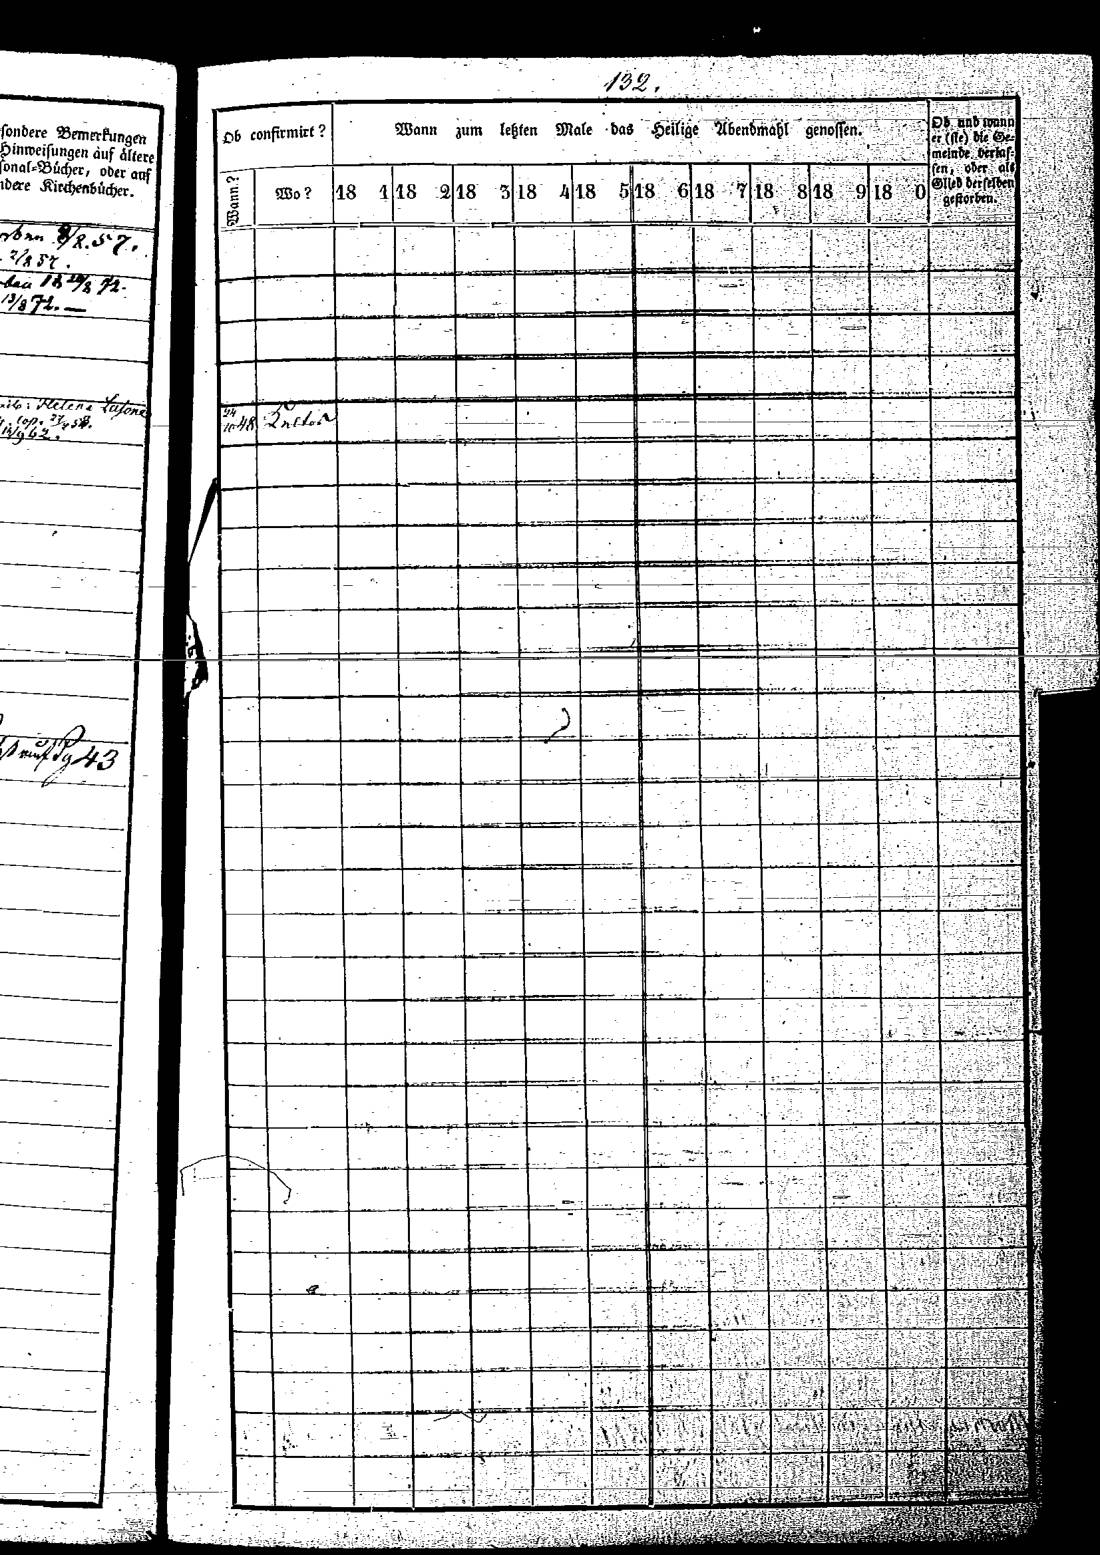 sondere Bemerkungen
Hinweisungen auf ältere
sonal-Bücher, oder auf
ndere Kirchenbücher.
8/8.57.
2/8 57.
18 10/8 72.
13/8 72. —
Helena
cop. 27/4 58.
14/9 62.
auf Pg 43
132.
Ob confirmirt?
Wann zum letzten Male das Heilige Abendmahl genossen.
Ob und wann
er (sie) die Ge-
meinde verlas-
sen, oder als
Glied derselben
gestorben.
Wann?
Wo?
18 1 18 2 18 3 18 4 18 5 18 6 18 7 18 8 18 9 18 0
24/10 48